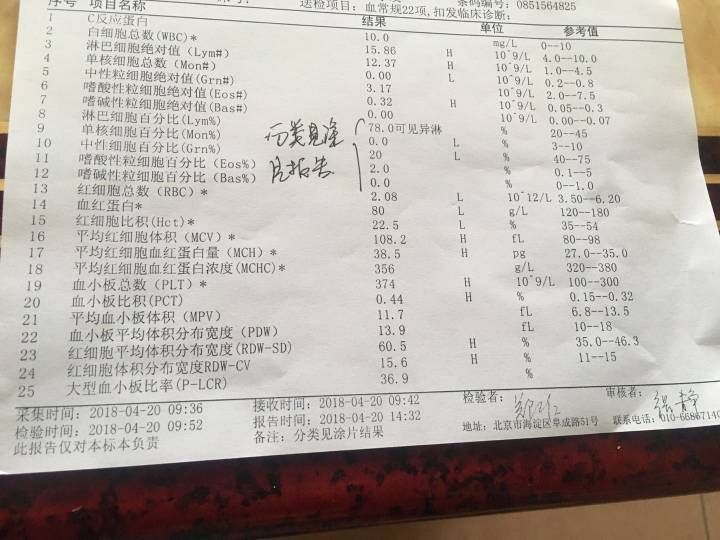 送检项目: 血常规22项,扣发临床诊断: 条码编号: 0851564825
序号 项目名称 结果 单位 参考值
1 C反应蛋白 10.0 mg/L 0--10
2 白细胞总数(WBC)* 15.86 H 10^9/L 4.0--10.0
3 淋巴细胞绝对值 (Lym#) 12.37 H 10^9/L 1.0--4.5
4 单核细胞总数 (Mon#) 0.00 L 10^9/L 0.2--0.8
5 中性粒细胞绝对值(Grn#) 3.17 10^9/L 2.0--7.5
6 嗜酸性粒细胞绝对值(Eos#) 0.32 H 10^9/L 0.05--0.3
7 嗜碱性粒细胞绝对值(Bas#) 0.00 10^9/L 0.00--0.07
8 淋巴细胞百分比(Lym%) 78.0可见异淋 % 20--45
9 单核细胞百分比(Mon%) 0.0 L % 3--10
10 中性细胞百分比(Grn%) 20 L % 40--75
11 嗜酸性粒细胞百分比 (Eos%) 2.0 % 0.1--5
12 嗜碱性粒细胞百分比 (Bas%) 0.0 % 0--1.0
分类见涂
片报告
13 红细胞总数 (RBC) * 2.08 L 10^12/L 3.50--6.20
14 血红蛋白* 80 L g/L 120--180
15 红细胞比积(Hct)* 22.5 L % 35--54
16 平均红细胞体积 (MCV) * 108.2 H fL 80--98
17 平均红细胞血红蛋白量 (MCH) * 38.5 H pg 27.0--35.0
18 平均红细胞血红蛋白浓度(MCHC)* 356 g/L 320--380
19 血小板总数 (PLT) * 374 H 10^9/L 100--300
20 血小板比积(PCT) 0.44 H % 0.15--0.32
21 平均血小板体积 (MPV) 11.7 fL 6.8--13.5
22 血小板平均体积分布宽度 (PDW) 13.9 fL 10--18
23 红细胞平均体积分布宽度(RDW-SD) 60.5 H % 35.0--46.3
24 红细胞体积分布宽度RDW-CV 15.6 H % 11--15
25 大型血小板比率(P-LCR) 36.9 %
采集时间: 2018-04-20 09:36 接收时间: 2018-04-20 09:42 检验者: 审核者:
检验时间: 2018-04-20 09:52 报告时间: 2018-04-20 14:32 地址: 北京市海淀区阜成路51号 联系电话:010-6686714
此报告仅对本标本负责 备注: 分类见涂片结果